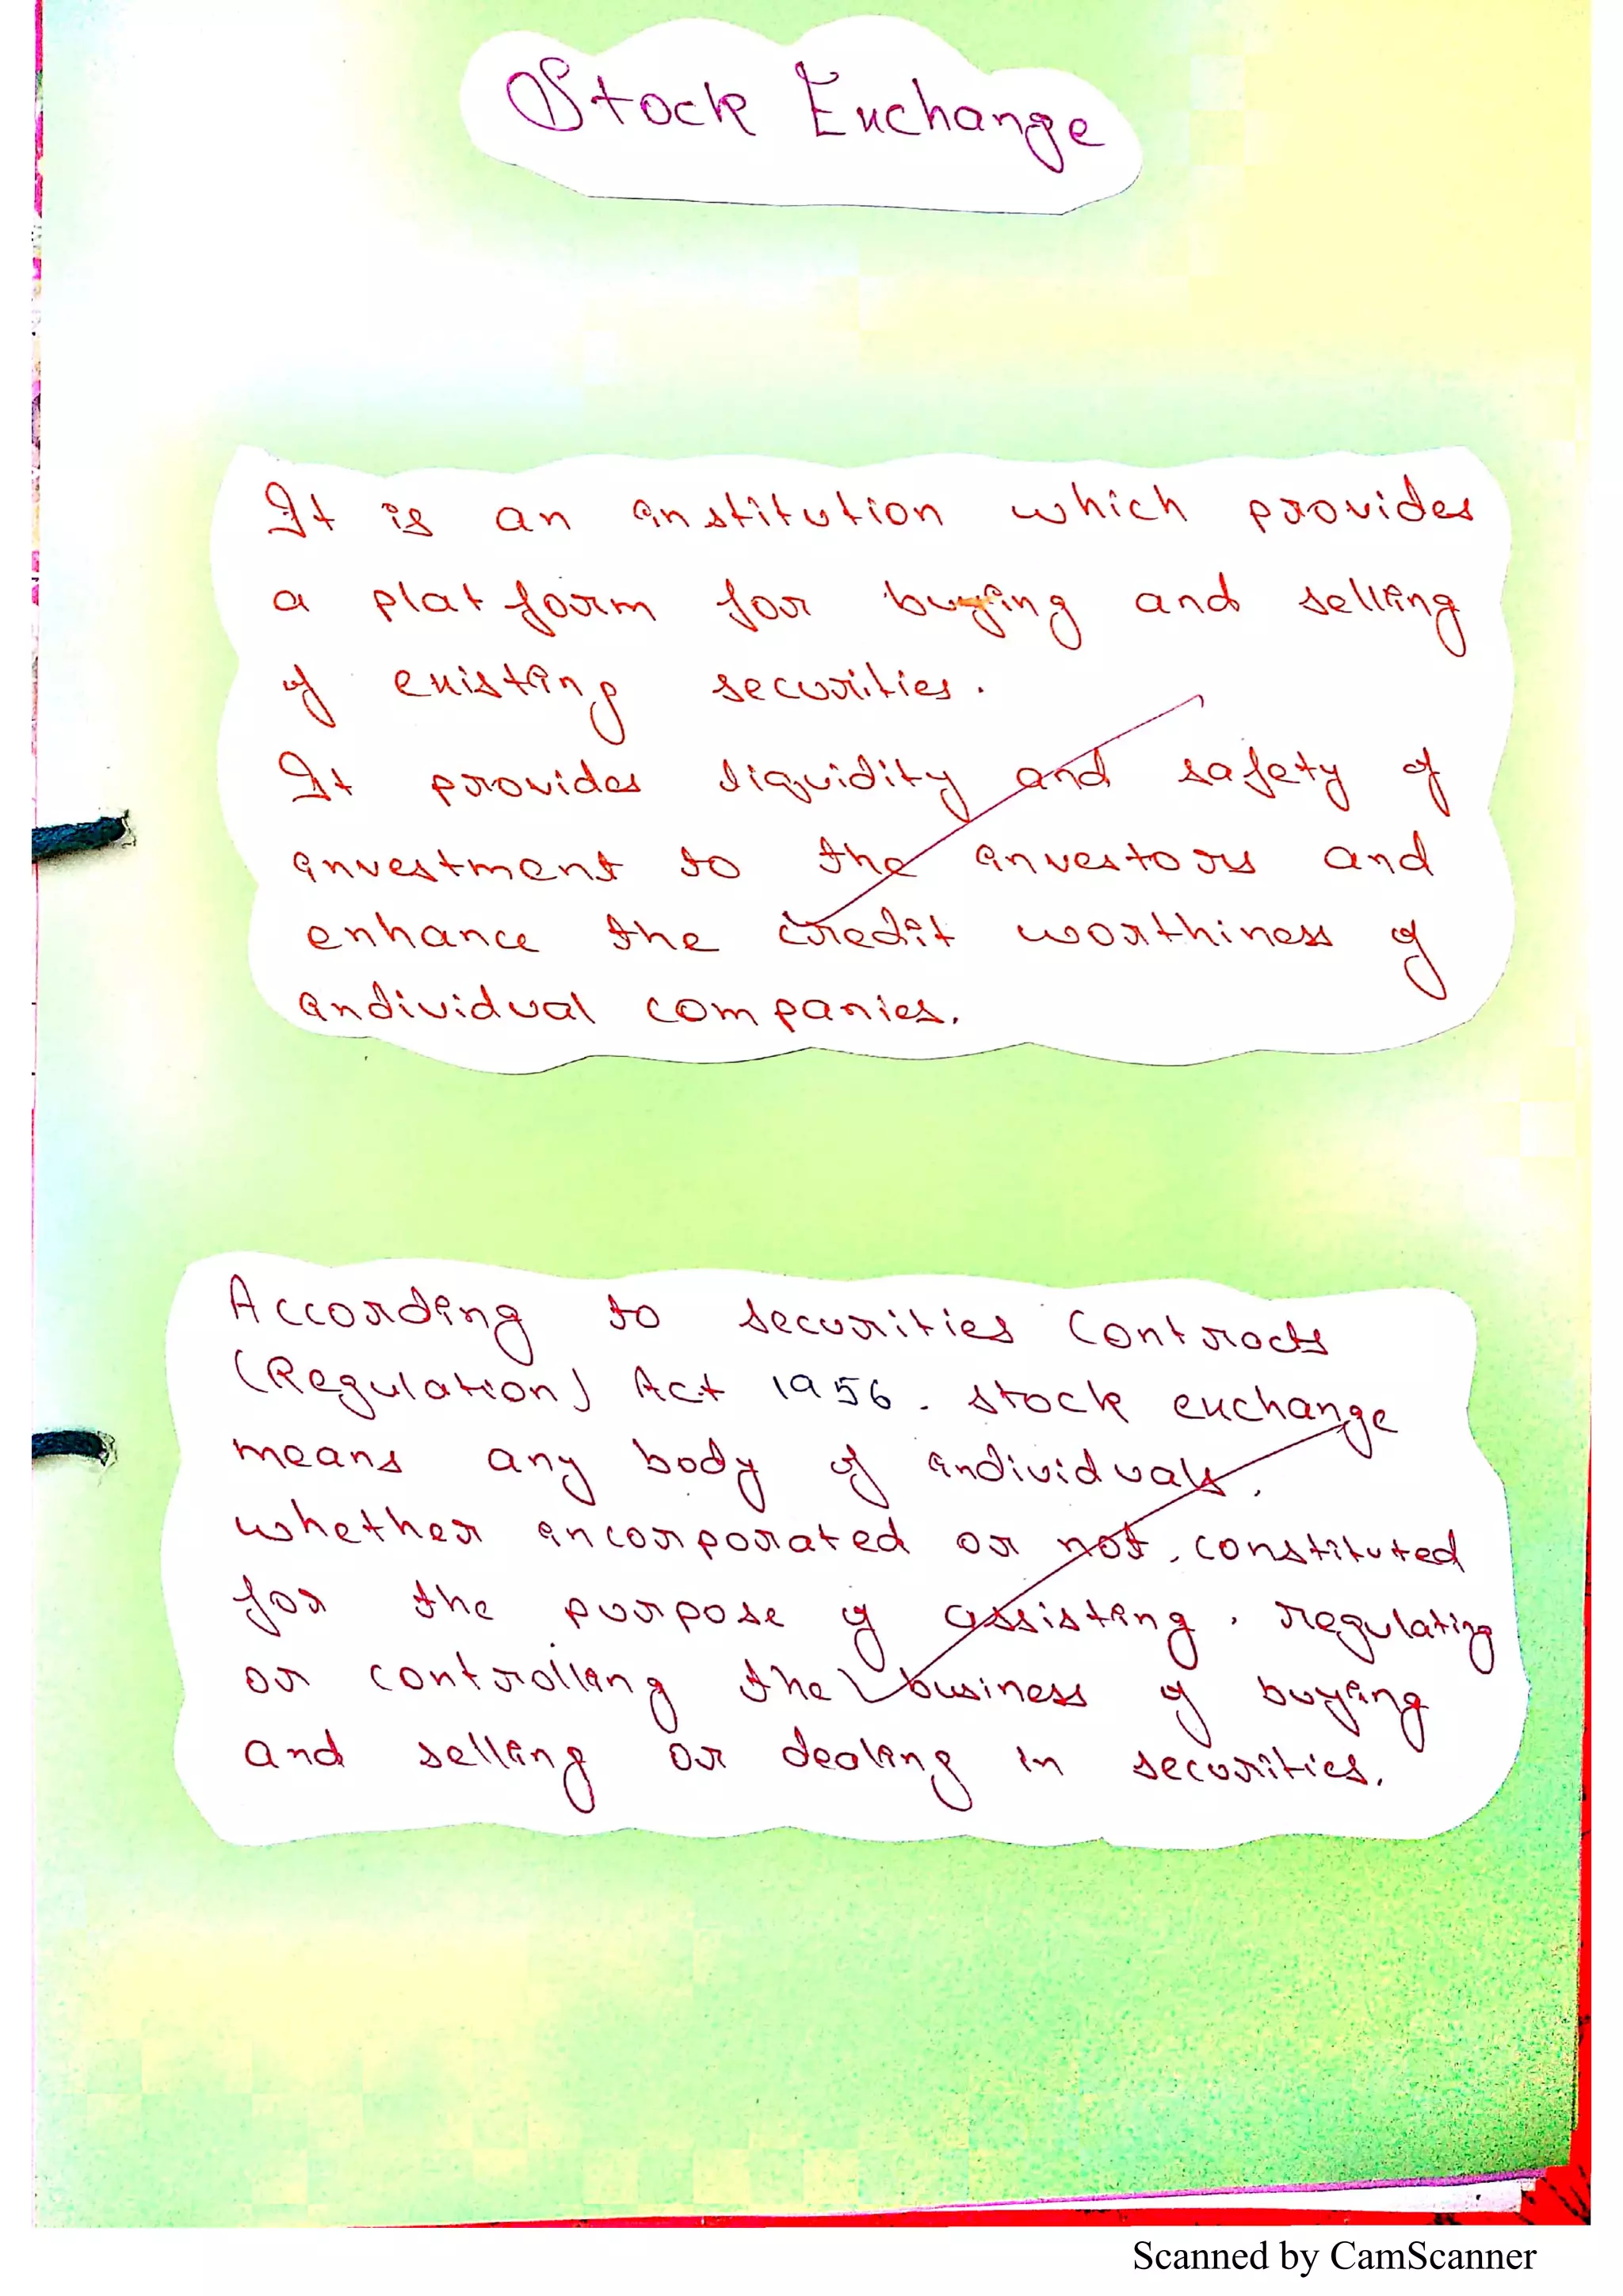 Stock Exchange
It is an institution which provides
a platform for buying and selling
of existing securities.
It provides liquidity and safety of
investment to the investors and
enhance the credit worthiness of
individual companies.
According to securities Contracts
(Regulation) Act 1956. stock exchange
means any body of individuals,
whether incorporated or not, constituted
for the purpose of assisting, regulating
or controlling the business of buying
and selling or dealing in securities.
Scanned by CamScanner